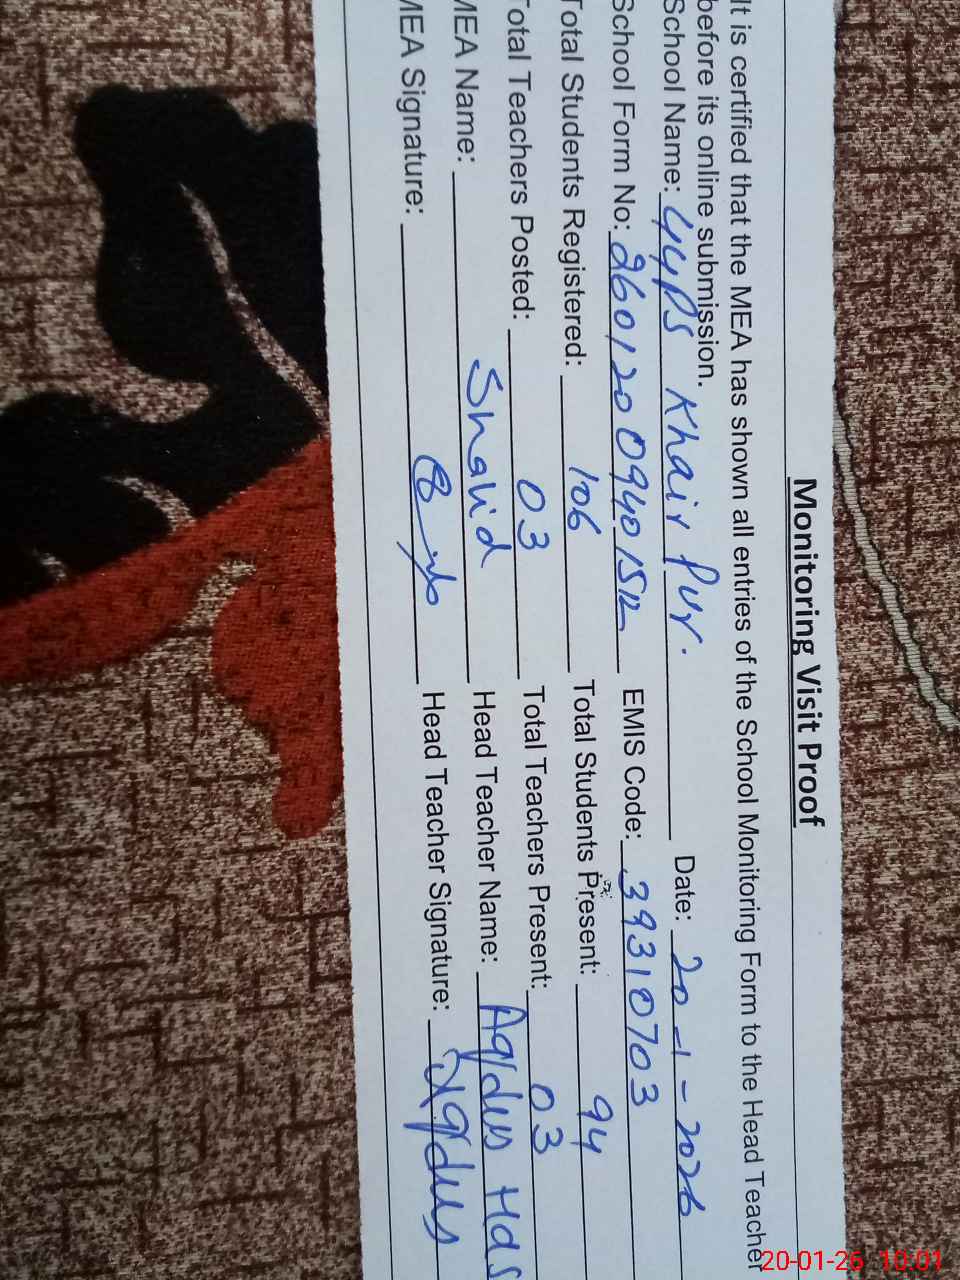 Monitoring Visit Proof
It is certified that the MEA has shown all entries of the School Monitoring Form to the Head Teacher
before its online submission.
School Name: GGPS Khair Pur. Date: 20-1-2026
School Form No: 2601200940152 EMIS Code: 39310703
Total Students Registered: 106 Total Students Present: 94
Total Teachers Posted: 03 Total Teachers Present: 03
MEA Name: Shahid Head Teacher Name: Aqdus Has
MEA Signature: Head Teacher Signature: Aqdus
20-01-26 10:01